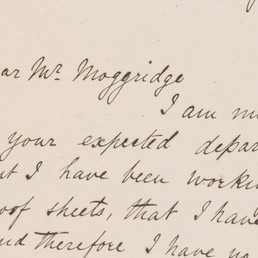 ear Mr. Moggridge
I am m
your expected depar
ut I have been workin
oof sheets, that I have
nd therefore I have no